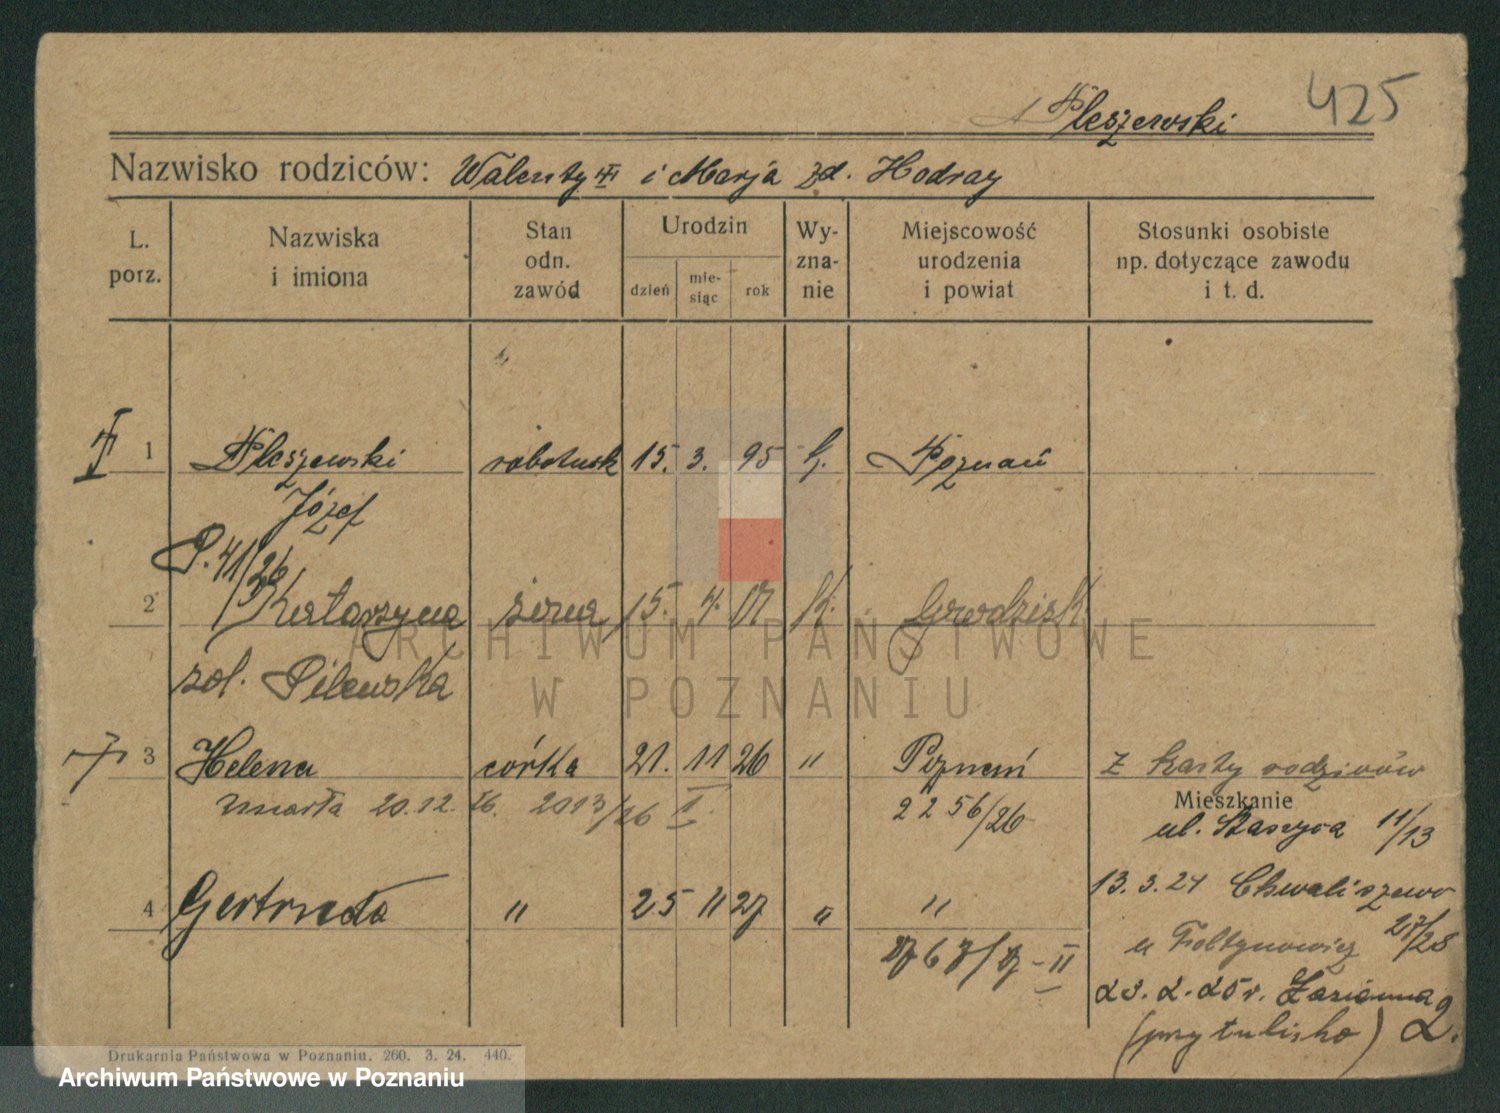 425
Pleszewski
Nazwisko rodziców: Walenty i Marja zd. Hodray
L. porz.
Nazwiska i imiona
Stan odn. zawód
Urodzin
dzień
mie-siąc
rok
Wy-zna-nie
Miejscowość urodzenia i powiat
Stosunki osobiste np. dotyczące zawodu i t. d.
1 Pleszewski robotnik 15. 3. 95 k. Poznań
Józef
P. 41/26
2 Katarzyna żona 15. 4. 07 k. Grodzisk
zol. Pilewska
3 Helena córka 21. 11 26 " Poznań z karty rodziców
umarła 20.12. 26. 2013/26 I. 2256/26
Mieszkanie
ul. Staszyca 11/13
13. 3. 24 Chwaliszewo
4 Gertruda " 25 11 27 " "
27/28
u Foltynowicz
II
23. 2. 25 r.
(przytulisko) 2.
Drukarnia Państwowa w Poznaniu. 260. 3. 24. 440.
ARCHIWUM PAŃSTWOWE
W POZNANIU
Archiwum Państwowe w Poznaniu